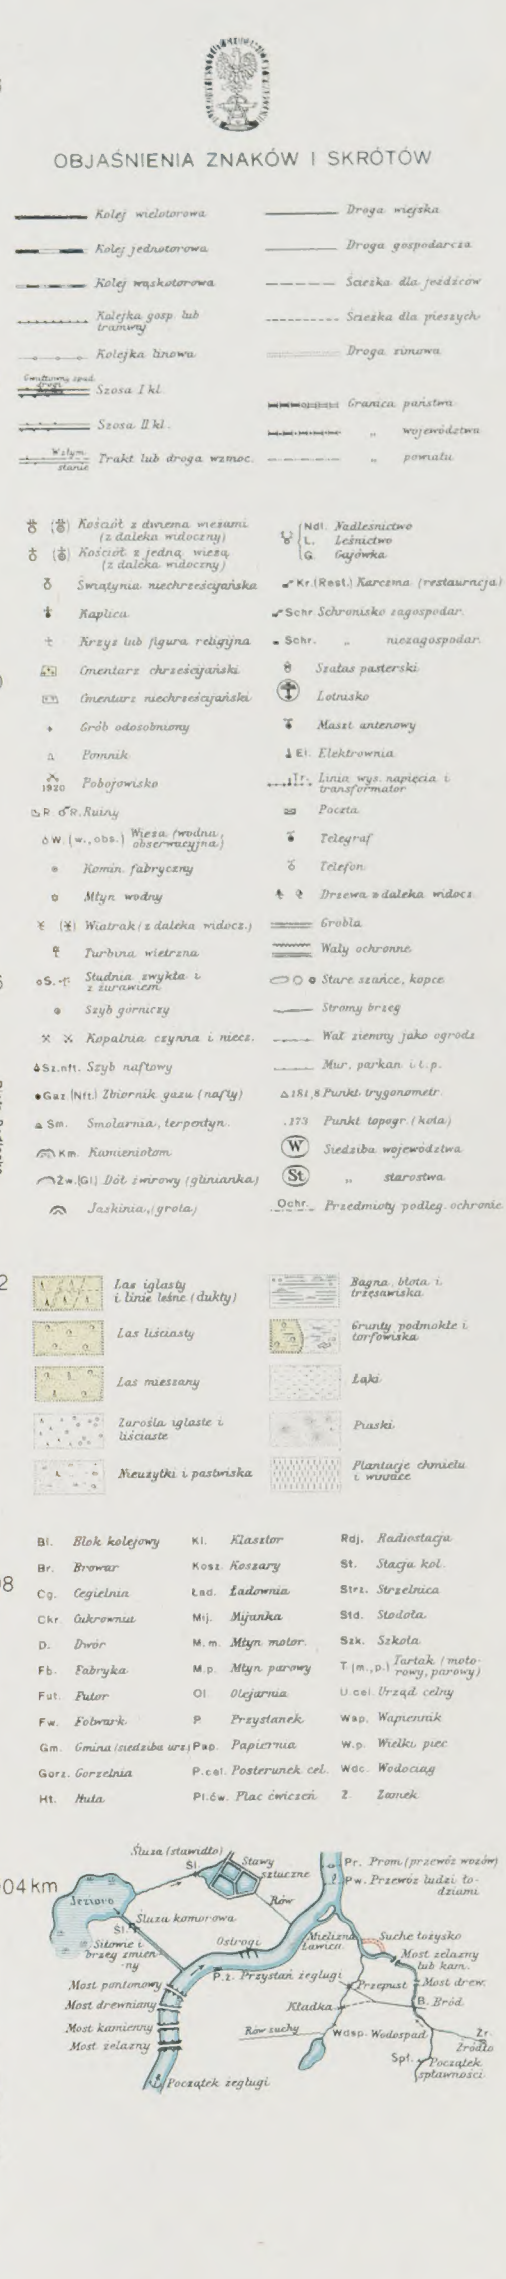 OBJAŚNIENIA ZNAKÓW I SKRÓTÓW
Kolej wielotorowa
Kolej jednotorowa
Kolej wąskotorowa
Kolejka gosp. lub
tramwaj
Kolejka linowa
Gwałtowny spad.
drogi
Szosa I kl.
Szosa II kl.
W złym
stanie
Trakt lub droga wzmoc.
Droga wiejska
Droga gospodarcza
Ścieżka dla jeźdźców
Ścieżka dla pieszych
Droga zimowa
Granica państwa
„ województwa
„ powiatu
Kościół z dwiema wieżami
(z daleka widoczny)
Kościół z jedną wieżą
(z daleka widoczny)
Świątynia niechrześcijańska
Kaplica
Krzyż lub figura religijna
Cmentarz chrześcijański
Cmentarz niechrześcijański
Grób odosobniony
Pomnik
1920 Pobojowisko
R. R. Ruiny
W. (w., obs.) Wieża (wodna,
obserwacyjna)
Komin fabryczny
Młyn wodny
Wiatrak (z daleka widocz.)
Turbina wietrzna
S. Studnia zwykła i
z żurawiem
Szyb górniczy
Kopalnia czynna i niecz.
Sz.nft. Szyb naftowy
Gaz.(Nft.) Zbiornik gazu (nafty)
Sm. Smolarnia, terpentyn.
Km. Kamieniołom
Żw.(Gl.) Dół żwirowy (glinianka)
Jaskinia, (grota)
Ndl. Nadleśnictwo
L. Leśnictwo
G. Gajówka
Kr.(Rest.) Karczma (restauracja)
Schr. Schronisko zagospodar.
Schr. „ niezagospodar.
Szałas pasterski
Lotnisko
Maszt antenowy
El. Elektrownia
Tr. Linia wys. napięcia i
transformator
Poczta
Telegraf
Telefon
Drzewa z daleka widocz.
Grobla
Wały ochronne
Stare szańce, kopce
Stromy brzeg
Wał ziemny jako ogrodz.
Mur, parkan i t. p.
181,8 Punkt trygonometr.
.173 Punkt topogr. (kota)
W Siedziba województwa
St „ starostwa
Ochr. Przedmioty podleg. ochronie
Las iglasty
i linie leśne (dukty)
Las liściasty
Las mieszany
Zarośla iglaste i
liściaste
Nieużytki i pastwiska
Bagna, błota i
trzęsawiska
Grunty podmokłe i
torfowiska
Łąki
Piaski
Plantacje chmielu
i winnice
Bl. Blok kolejowy
Br. Browar
Cg. Cegielnia
Ckr. Cukrownia
D. Dwór
Fb. Fabryka
Fut. Futor
Fw. Folwark
Gm. Gmina (siedziba urz.)
Gorz. Gorzelnia
Ht. Huta
Kl. Klasztor
Kosz. Koszary
Ład. Ładownia
Mij. Mijanka
M.m. Młyn motor.
M.p. Młyn parowy
Ol. Olejarnia
P. Przystanek
Pap. Papiernia
P.cel. Posterunek cel.
Pl.ćw. Plac ćwiczeń
Rdj. Radiostacja
St. Stacja kol.
Strz. Strzelnica
Std. Stodoła
Szk. Szkoła
T (m., p.) Tartak (moto-
rowy, parowy)
U.cel. Urząd celny
Wap. Wapiennik
W.p. Wielki piec
Wdc. Wodociąg
Z. Zamek
04 km
Śluza (stawidło)
Śl.
Stawy
sztuczne
Rów
Pr. Prom (przewóz wozów)
Pw. Przewóz ludzi ło-
dziami
Jezioro
Śl.
Śluza komorowa
Sitowie i
brzeg zmien-
ny
Ostrogi
Mielizna
Ławica
Suche łożysko
Most żelazny
lub kam.
P.ż. Przystań żeglugi
Przepust
Most drew.
Most pontonowy
Most drewniany
Most kamienny
Most żelazny
Kładka
B. Bród
Rów suchy
Wdsp. Wodospad
Źr.
Źródło
Spł.
Początek
spławności
Początek żeglugi